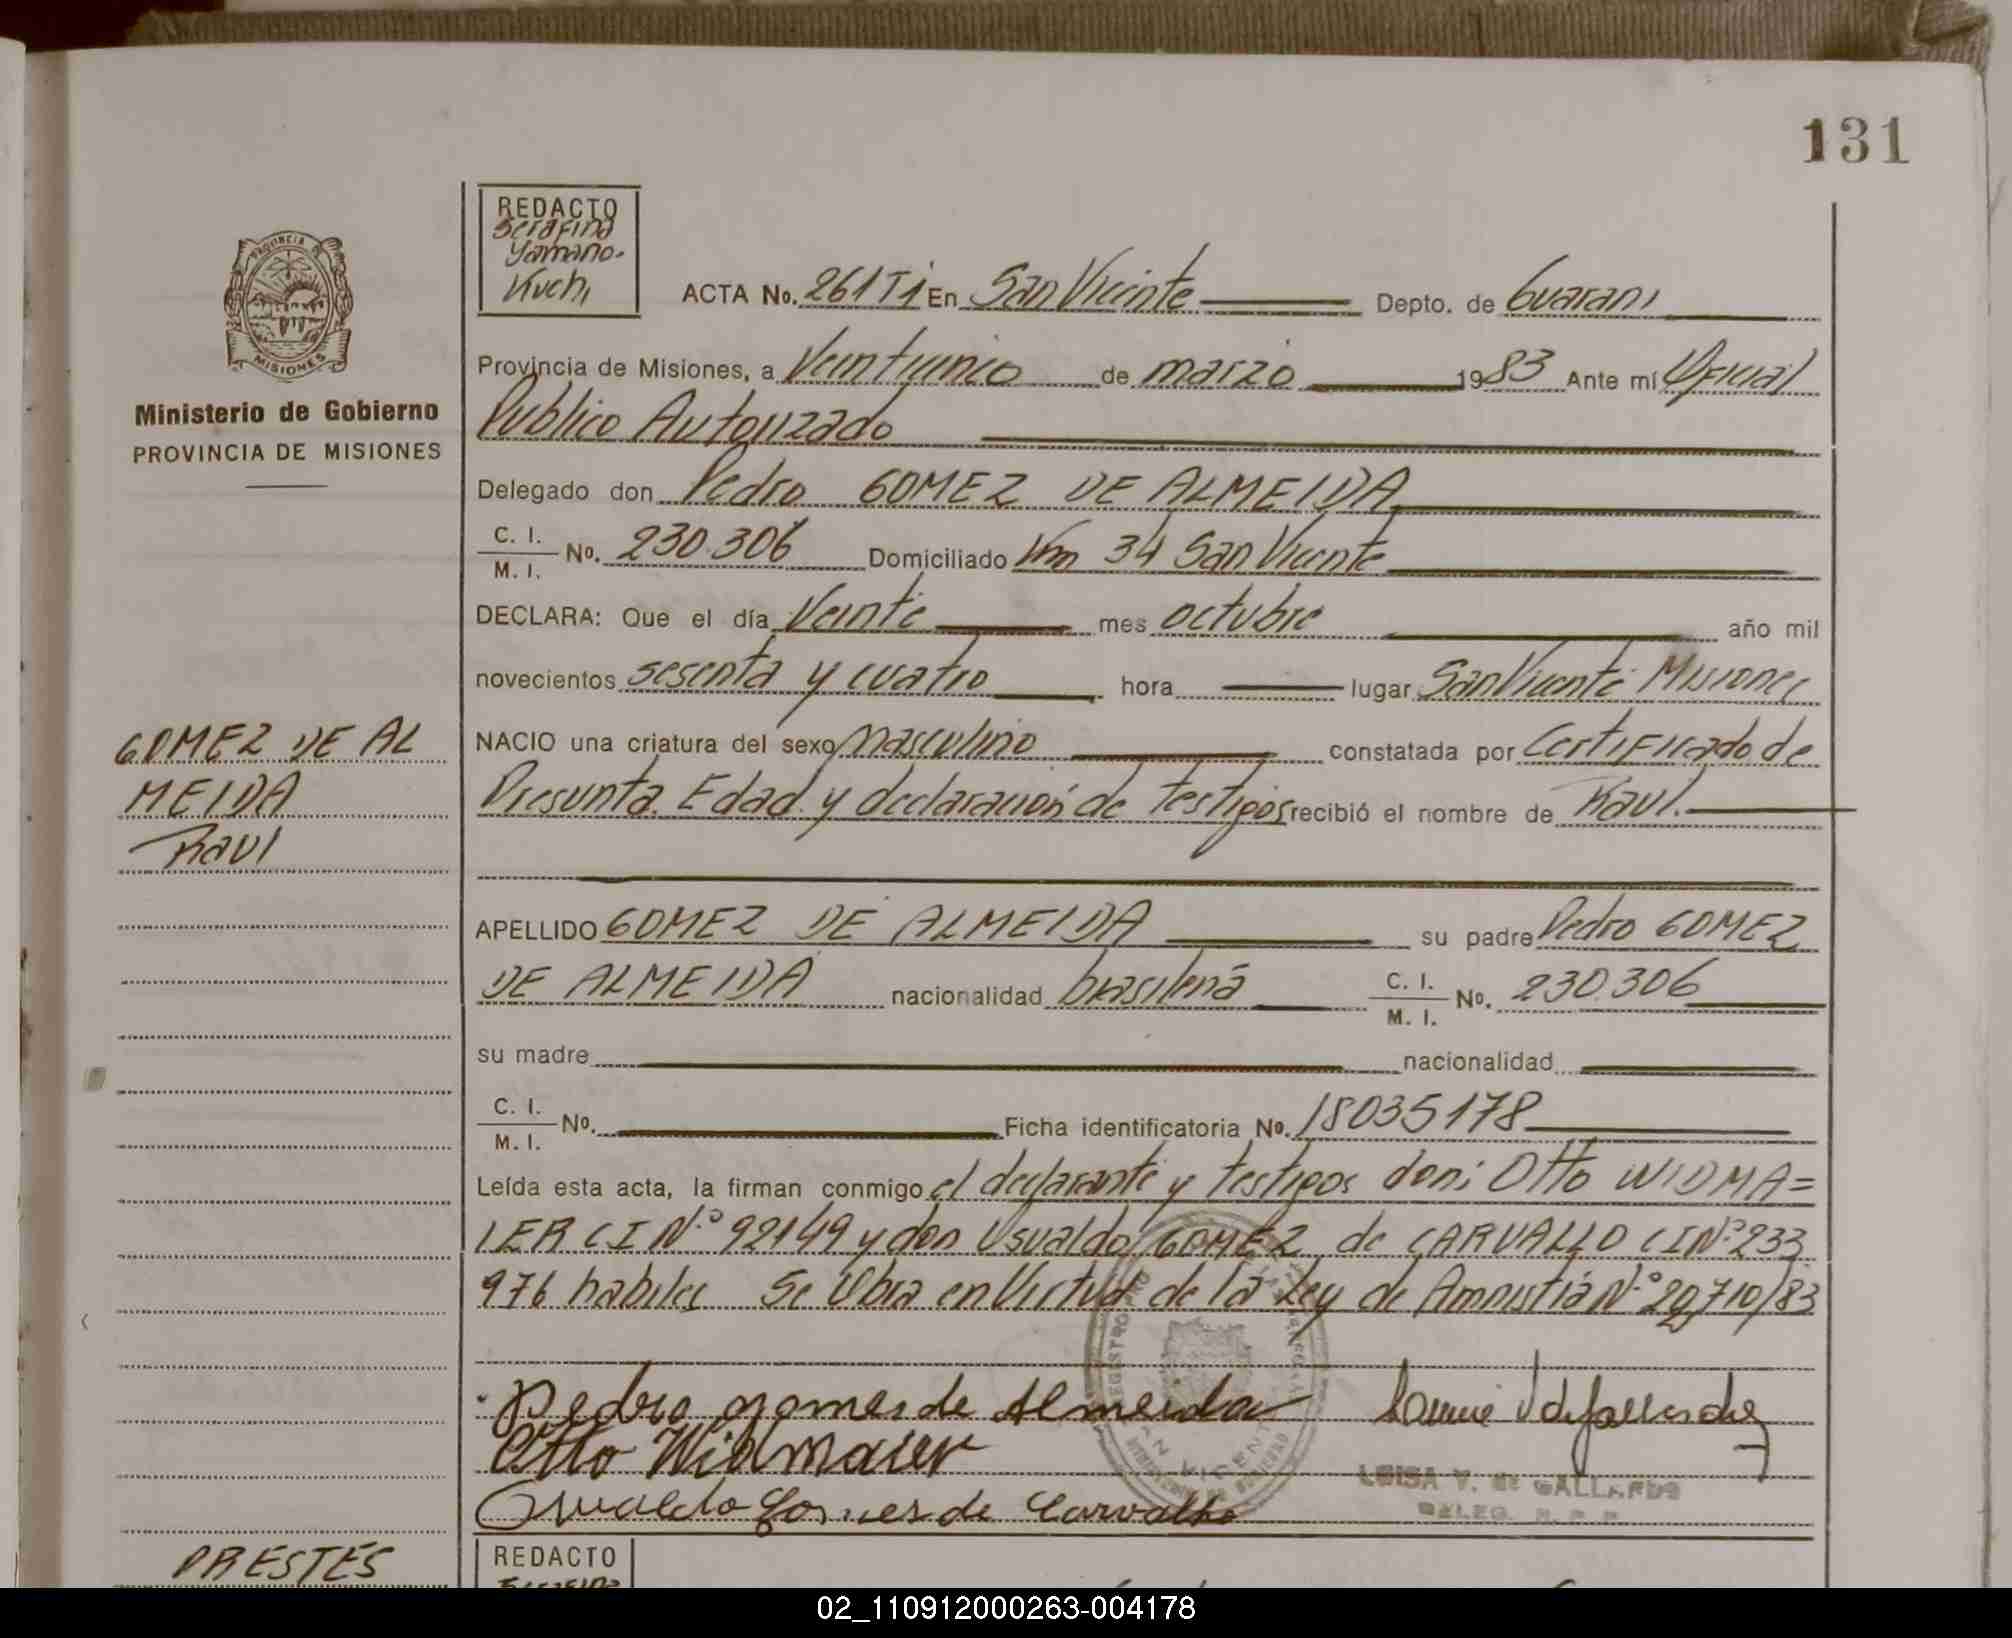 131
REDACTO
Serafina
Yamano-
Kuchi
PROVINCIA
MISIONES
Ministerio de Gobierno
PROVINCIA DE MISIONES
ACTA No. 261 T1 En San Vicente Depto. de Guarani
Provincia de Misiones, a Veintiunico de marzo 1983 Ante mí Oficial
Publico Autorizado
Delegado don Pedro GOMEZ DE ALMEIDA
C. I.
M. I. No. 230.306 Domiciliado Km 34 San Vicente
DECLARA: Que el día Veinte mes octubre año mil
novecientos sesenta y cuatro hora lugar San Vicente Misiones
NACIO una criatura del sexo masculino constatada por Certificado de
Presunta Edad y declaración de testigos recibió el nombre de Raul.
GOMEZ DE AL
MEIDA
Raul
APELLIDO GOMEZ DE ALMEIDA su padre Pedro GOMEZ
DE ALMEIDA nacionalidad brasileña C. I.
M. I. No. 230.306
su madre nacionalidad
C. I.
M. I. No. Ficha identificatoria No. 18035178
Leída esta acta, la firman conmigo el declarante y testigos don: Otto WIDMA=
IER CI N.° 92149 y don Usualdo GOMEZ de CARVALLO CI N.° 233
976 habiles Se Obra en Virtud de la Ley de Amnistiá N.° 22710/83
Pedro gomes de Almeida
Otto Widmaier
Osvaldo Gomes de Carvalho
LUISA V. DE GALLARDO
DELEG. R. P. P.
PRESTES
REDACTO
02_110912000263-004178